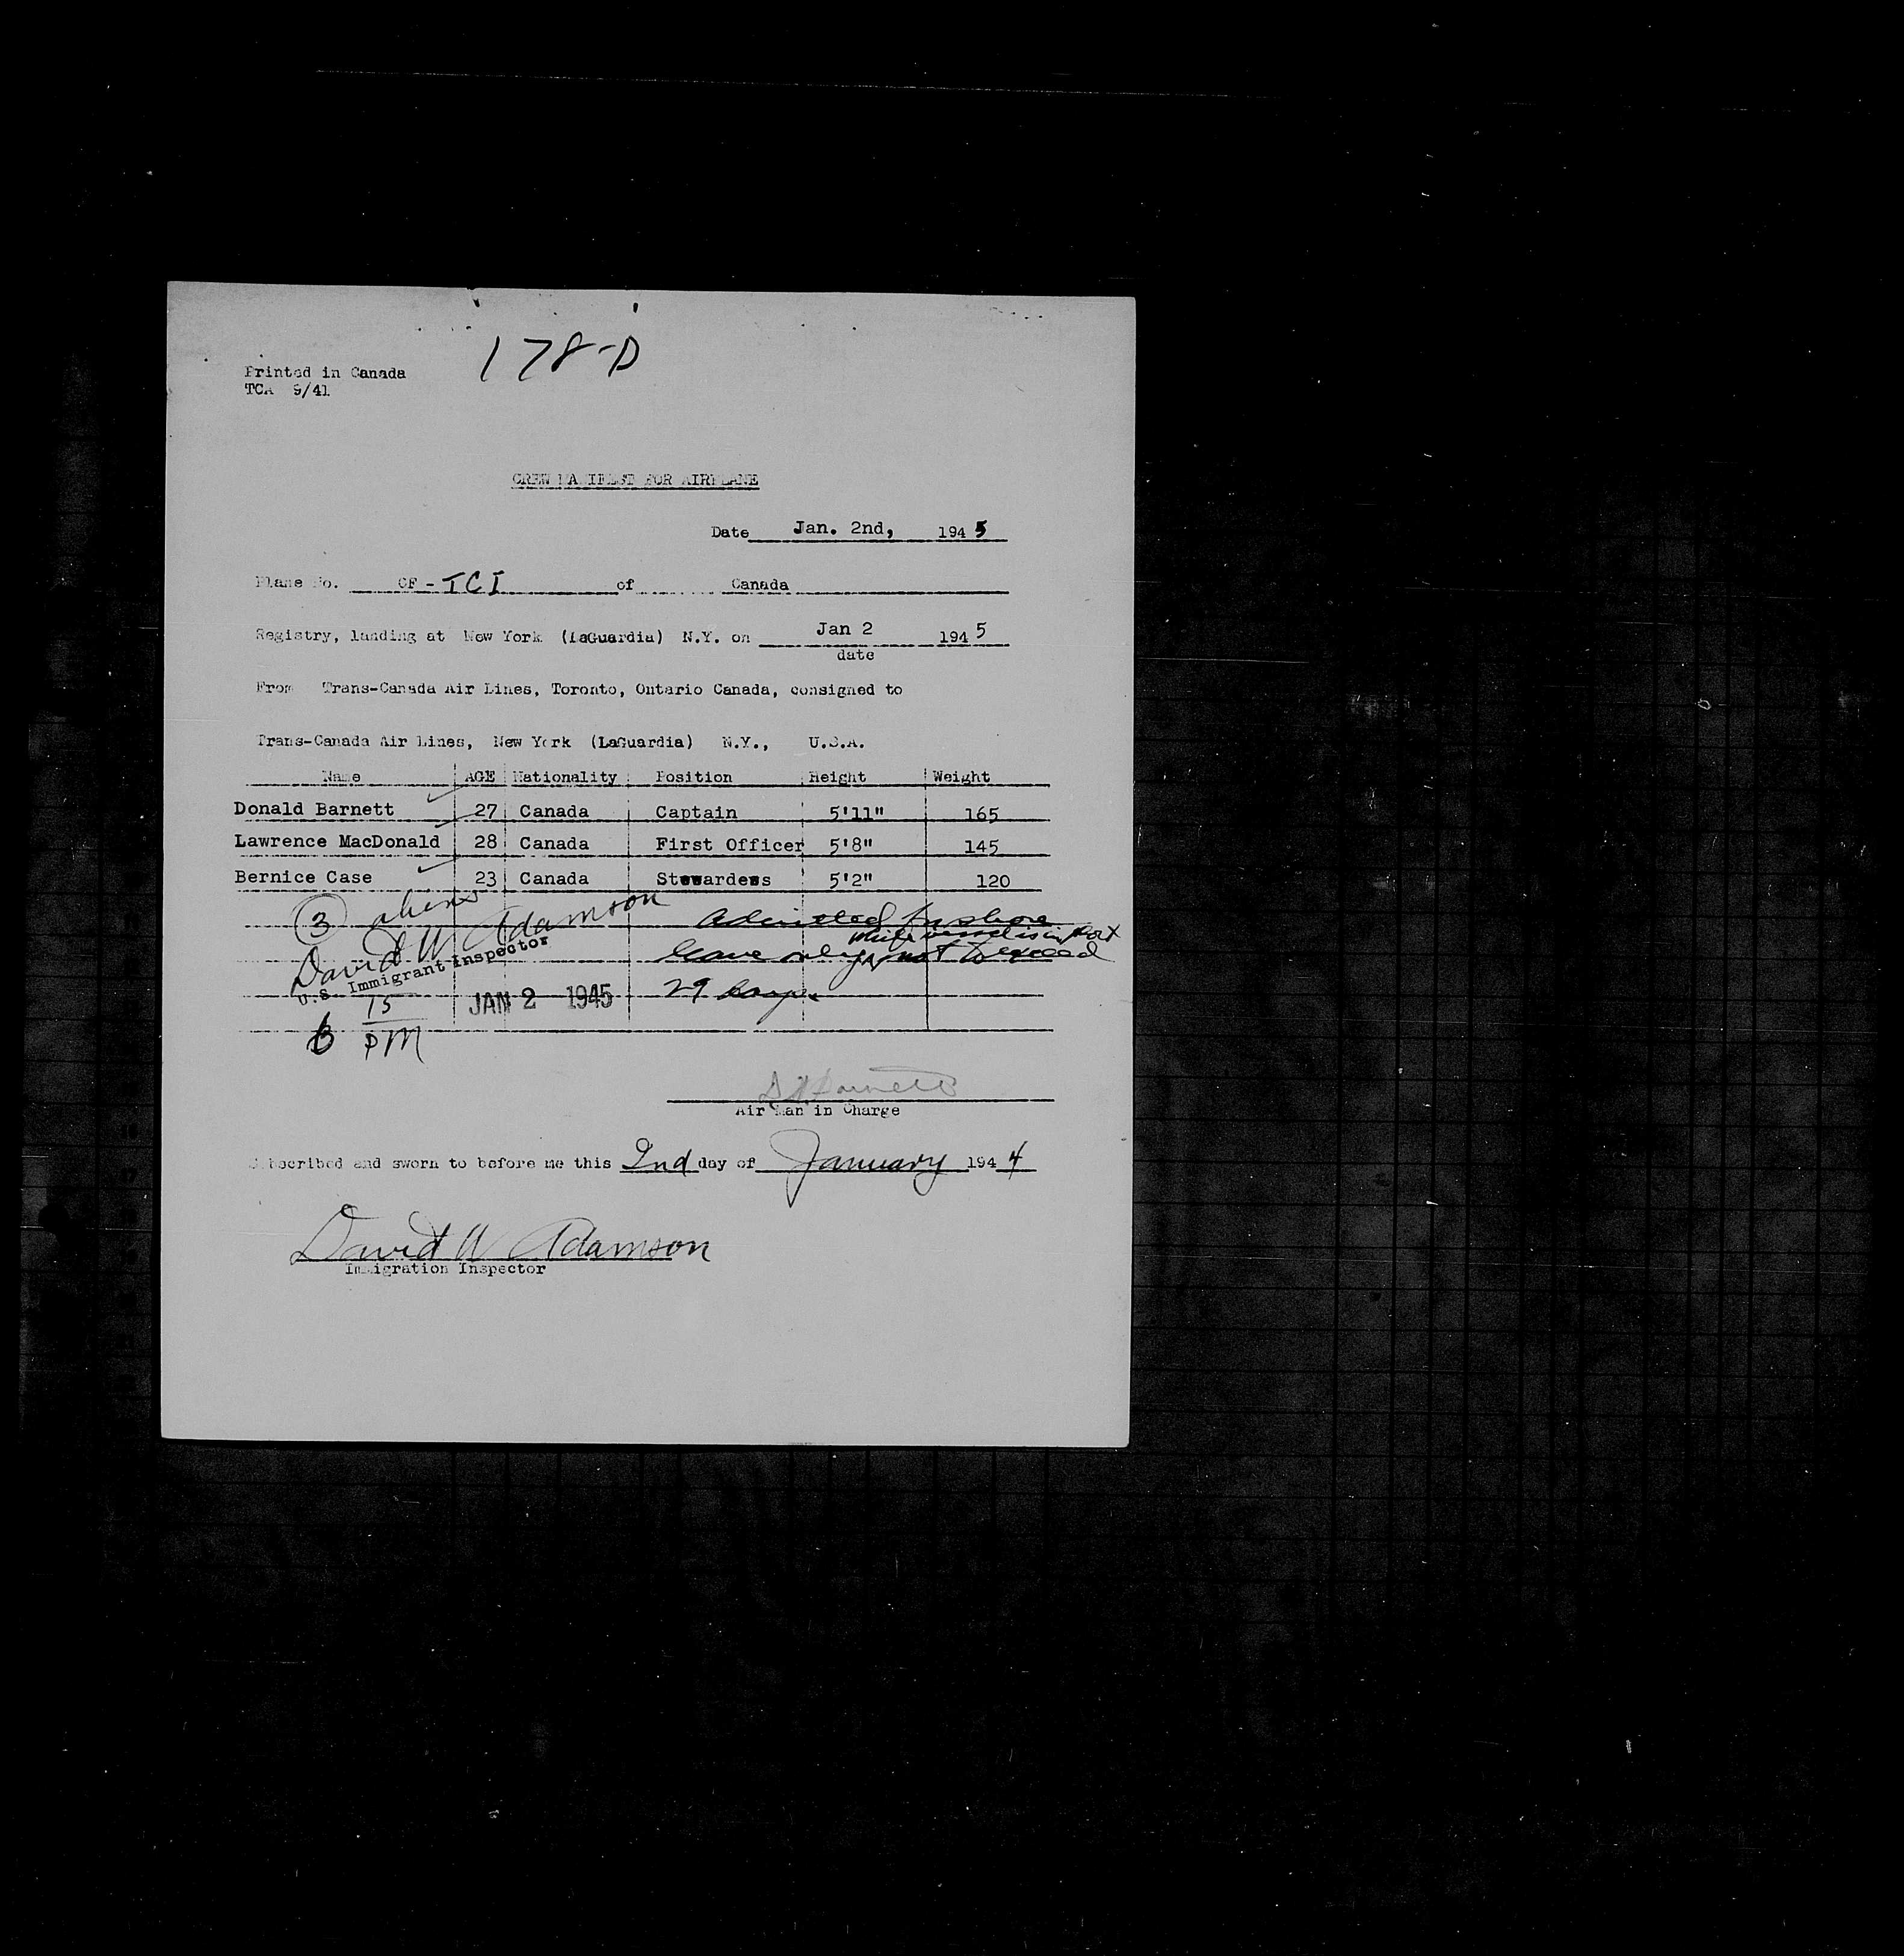 178-D
Printed in Canada
TCA 9/41
CREW MANIFEST FOR AIRPLANE
Date Jan. 2nd, 1945
Plane No. CF-TCI of Canada
Registry, landing at New York (LaGuardia) N.Y. on Jan 2 1945
date
From Trans-Canada Air Lines, Toronto, Ontario Canada, consigned to
Trans-Canada Air Lines, New York (LaGuardia) N.Y., U.S.A.
Name AGE Nationality Position Height Weight
Donald Barnett 27 Canada Captain 5'11" 165
Lawrence MacDonald 28 Canada First Officer 5'8" 145
Bernice Case 23 Canada Stewardess 5'2" 120
3 aliens
David W Adamson
U.S. Immigrant Inspector
Admitted for shore
while vessel is in port
leave only not to exceed
29 days.
JAN 2 1945
6 15
PM
D Barnett
Air Man in Charge
Subscribed and sworn to before me this 2nd day of January 1944
David W Adamson
Immigration Inspector